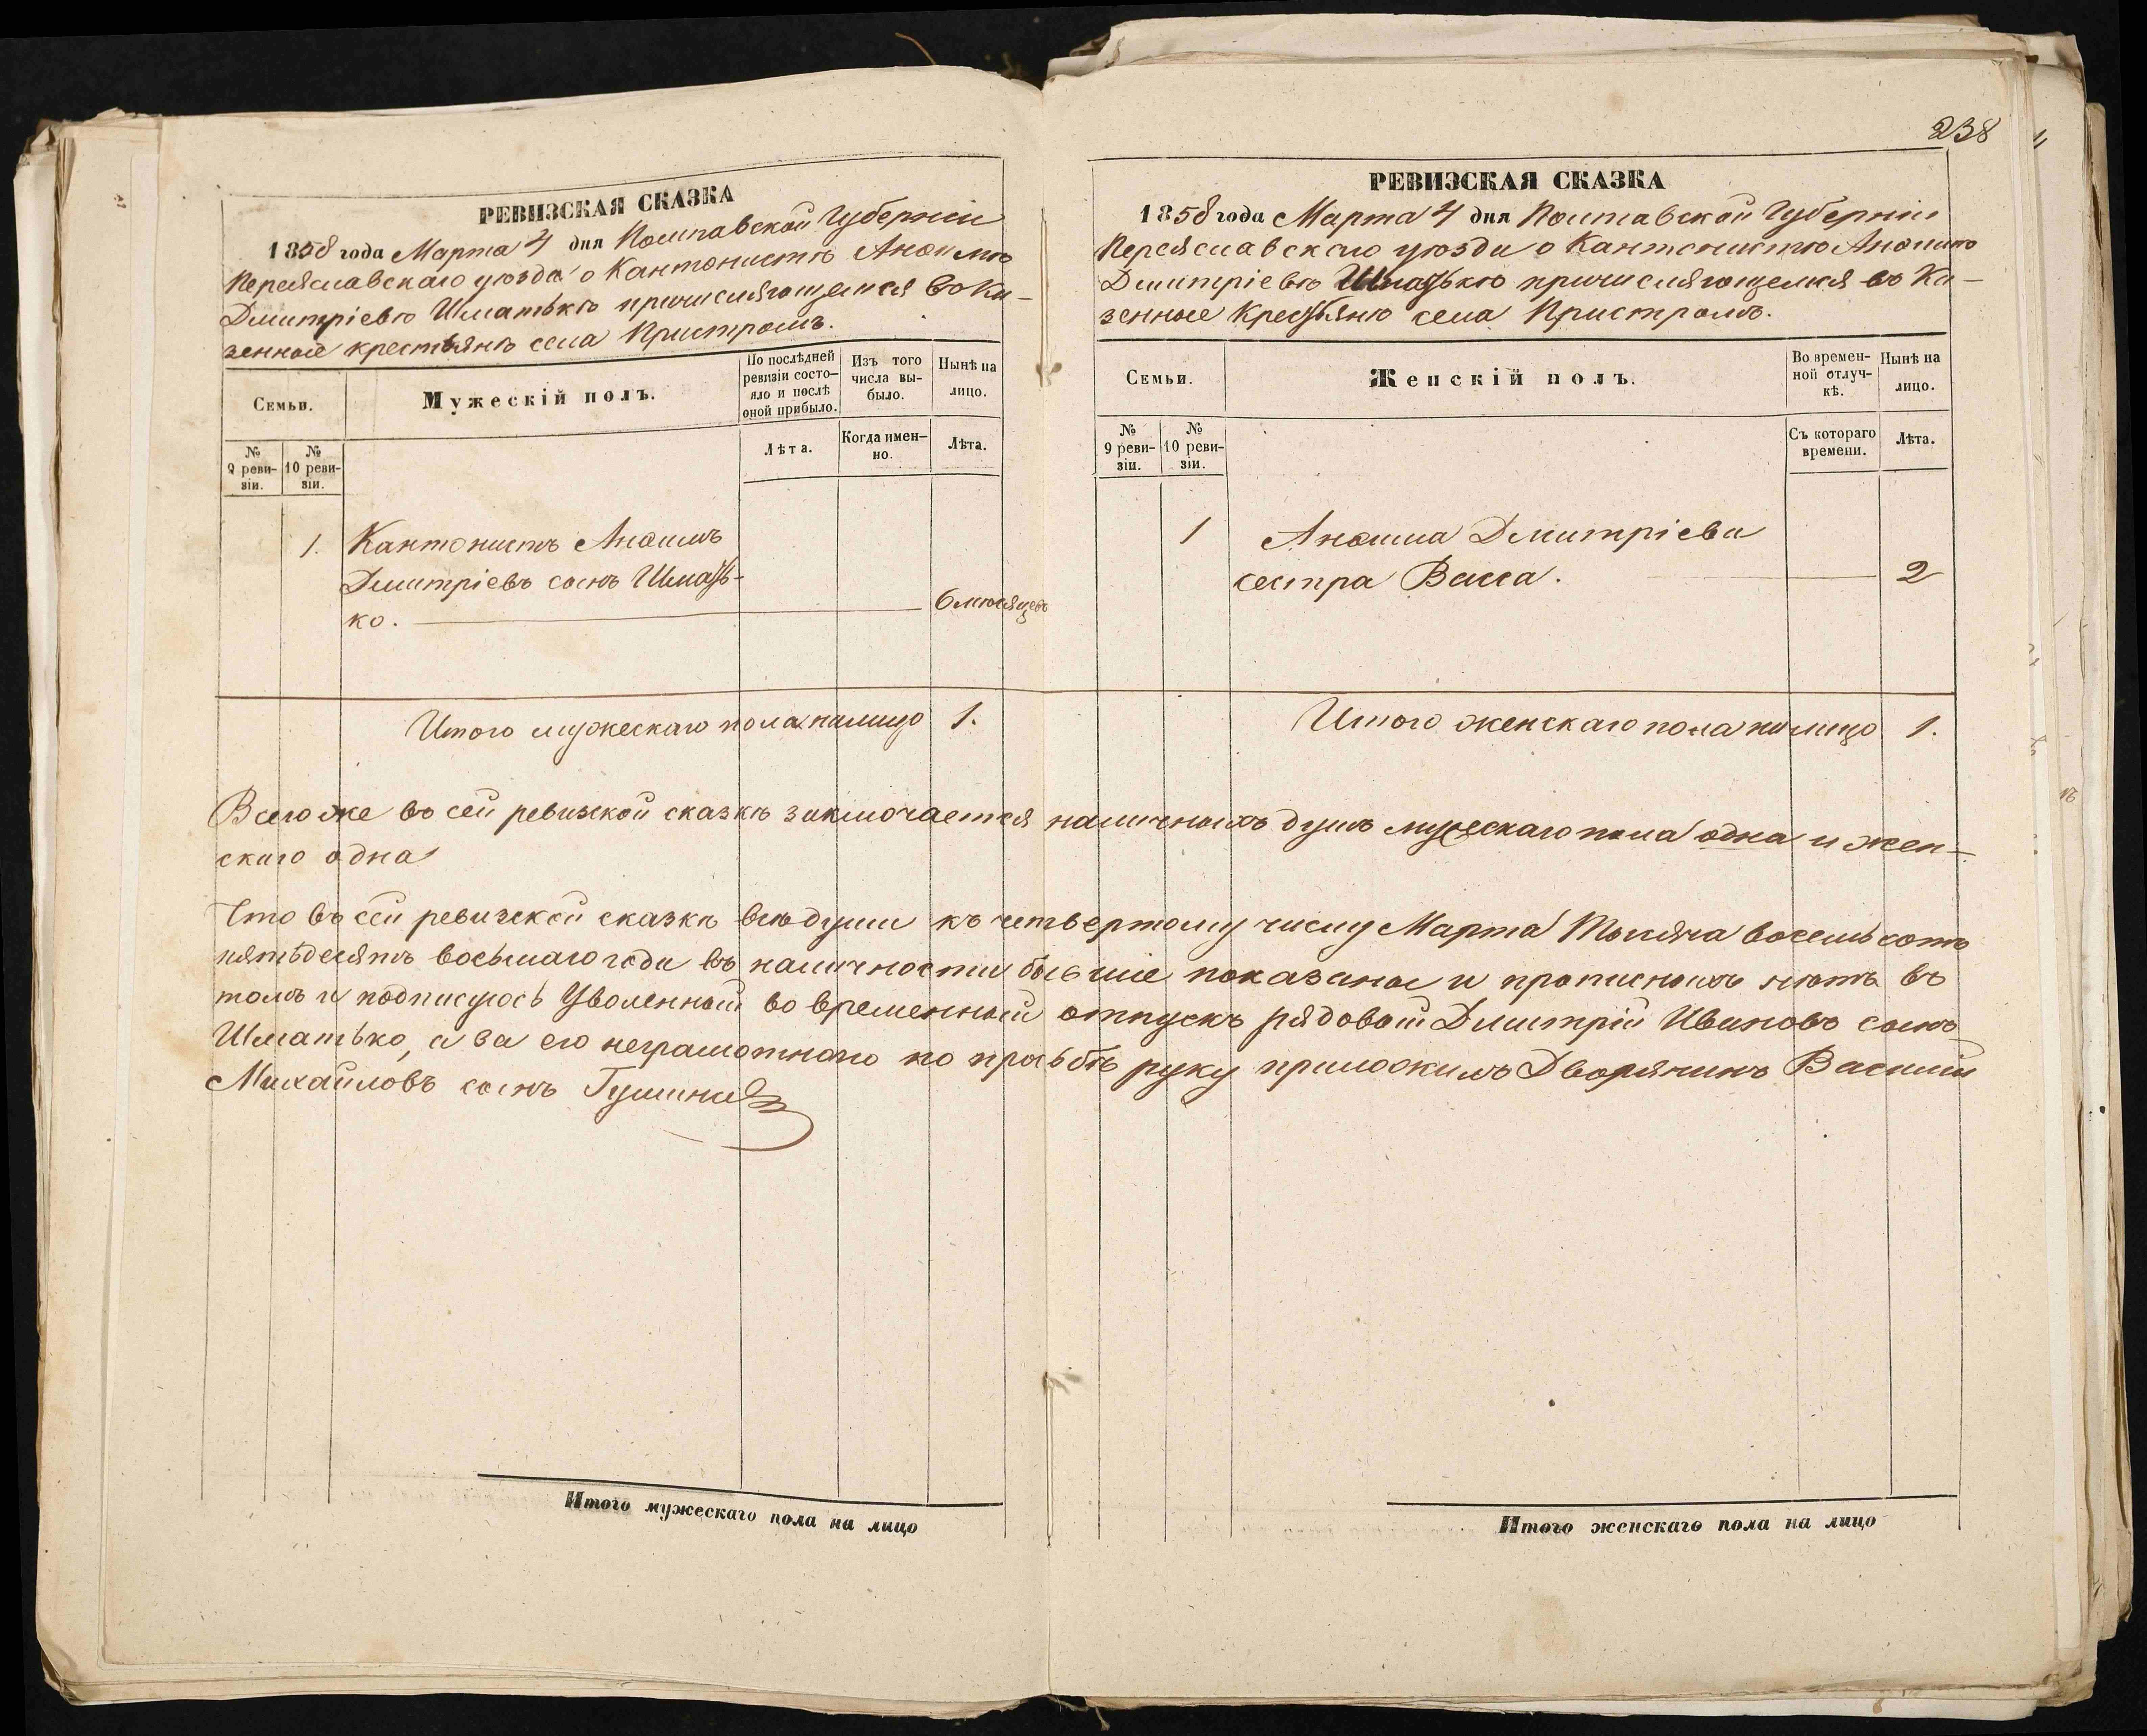 238
РЕВИЗСКАЯ СКАЗКА
1858 года Марта 4 дня Полтавской Губерніи
Переяславскаго уѣзда о Кантонистѣ Акимѣ
Дмитріевѣ Шматькѣ причисляющемся въ Ка-
зенные крестьянѣ села Пристромъ.
Семьи.
Мужескій полъ.
По послѣдней ревизіи состо-яло и послѣ оной прибыло.
Изъ того числа вы-было.
Нынѣ на лицо.
№ 9 реви-зіи.
№ 10 реви-зіи.
Лѣта.
Когда имен-но.
Лѣта.
1. Кантонистъ Акимъ
Дмитріевъ сынъ Шмать-
ко. 6 мѣсяцевъ
Итого мужескаго пола налицо 1.
РЕВИЗСКАЯ СКАЗКА
1858 года Марта 4 дня Полтавской Губерніи
Переяславскаго уѣзда о Кантонистѣ
Дмитріевѣ Шматькѣ причисляющемся въ Ка-
зенные Крестьянѣ села Пристромъ.
Семьи.
Женскій полъ.
Во времен-ной отлуч-кѣ.
Нынѣ на лицо.
№ 9 реви-зіи.
№ 10 реви-зіи.
Съ котораго времени.
Лѣта.
1 Дмитріева
сестра Васса. 2
Итого женскаго пола налицо 1.
Всего же въ сей ревизской сказкѣ заключается наличныхъ душъ мужескаго пола одна и жен-
скаго одна
Что въ сей ревизской сказкѣ всѣ души къ четвертому числу Марта Тысяча восемьсотъ
пятьдесятъ восьмаго года въ наличности бывшіе показаны и прописныхъ нѣтъ въ
томъ и подписуюсь Уволенный во временный отпускъ рядовой Дмитрій Ивановъ сынъ
Шматько, а за его неграмотнаго по прозьбѣ руку приложилъ Дворянинъ Василій
Михайловъ сынъ
Итого мужескаго пола на лицо
Итого женскаго пола на лицо